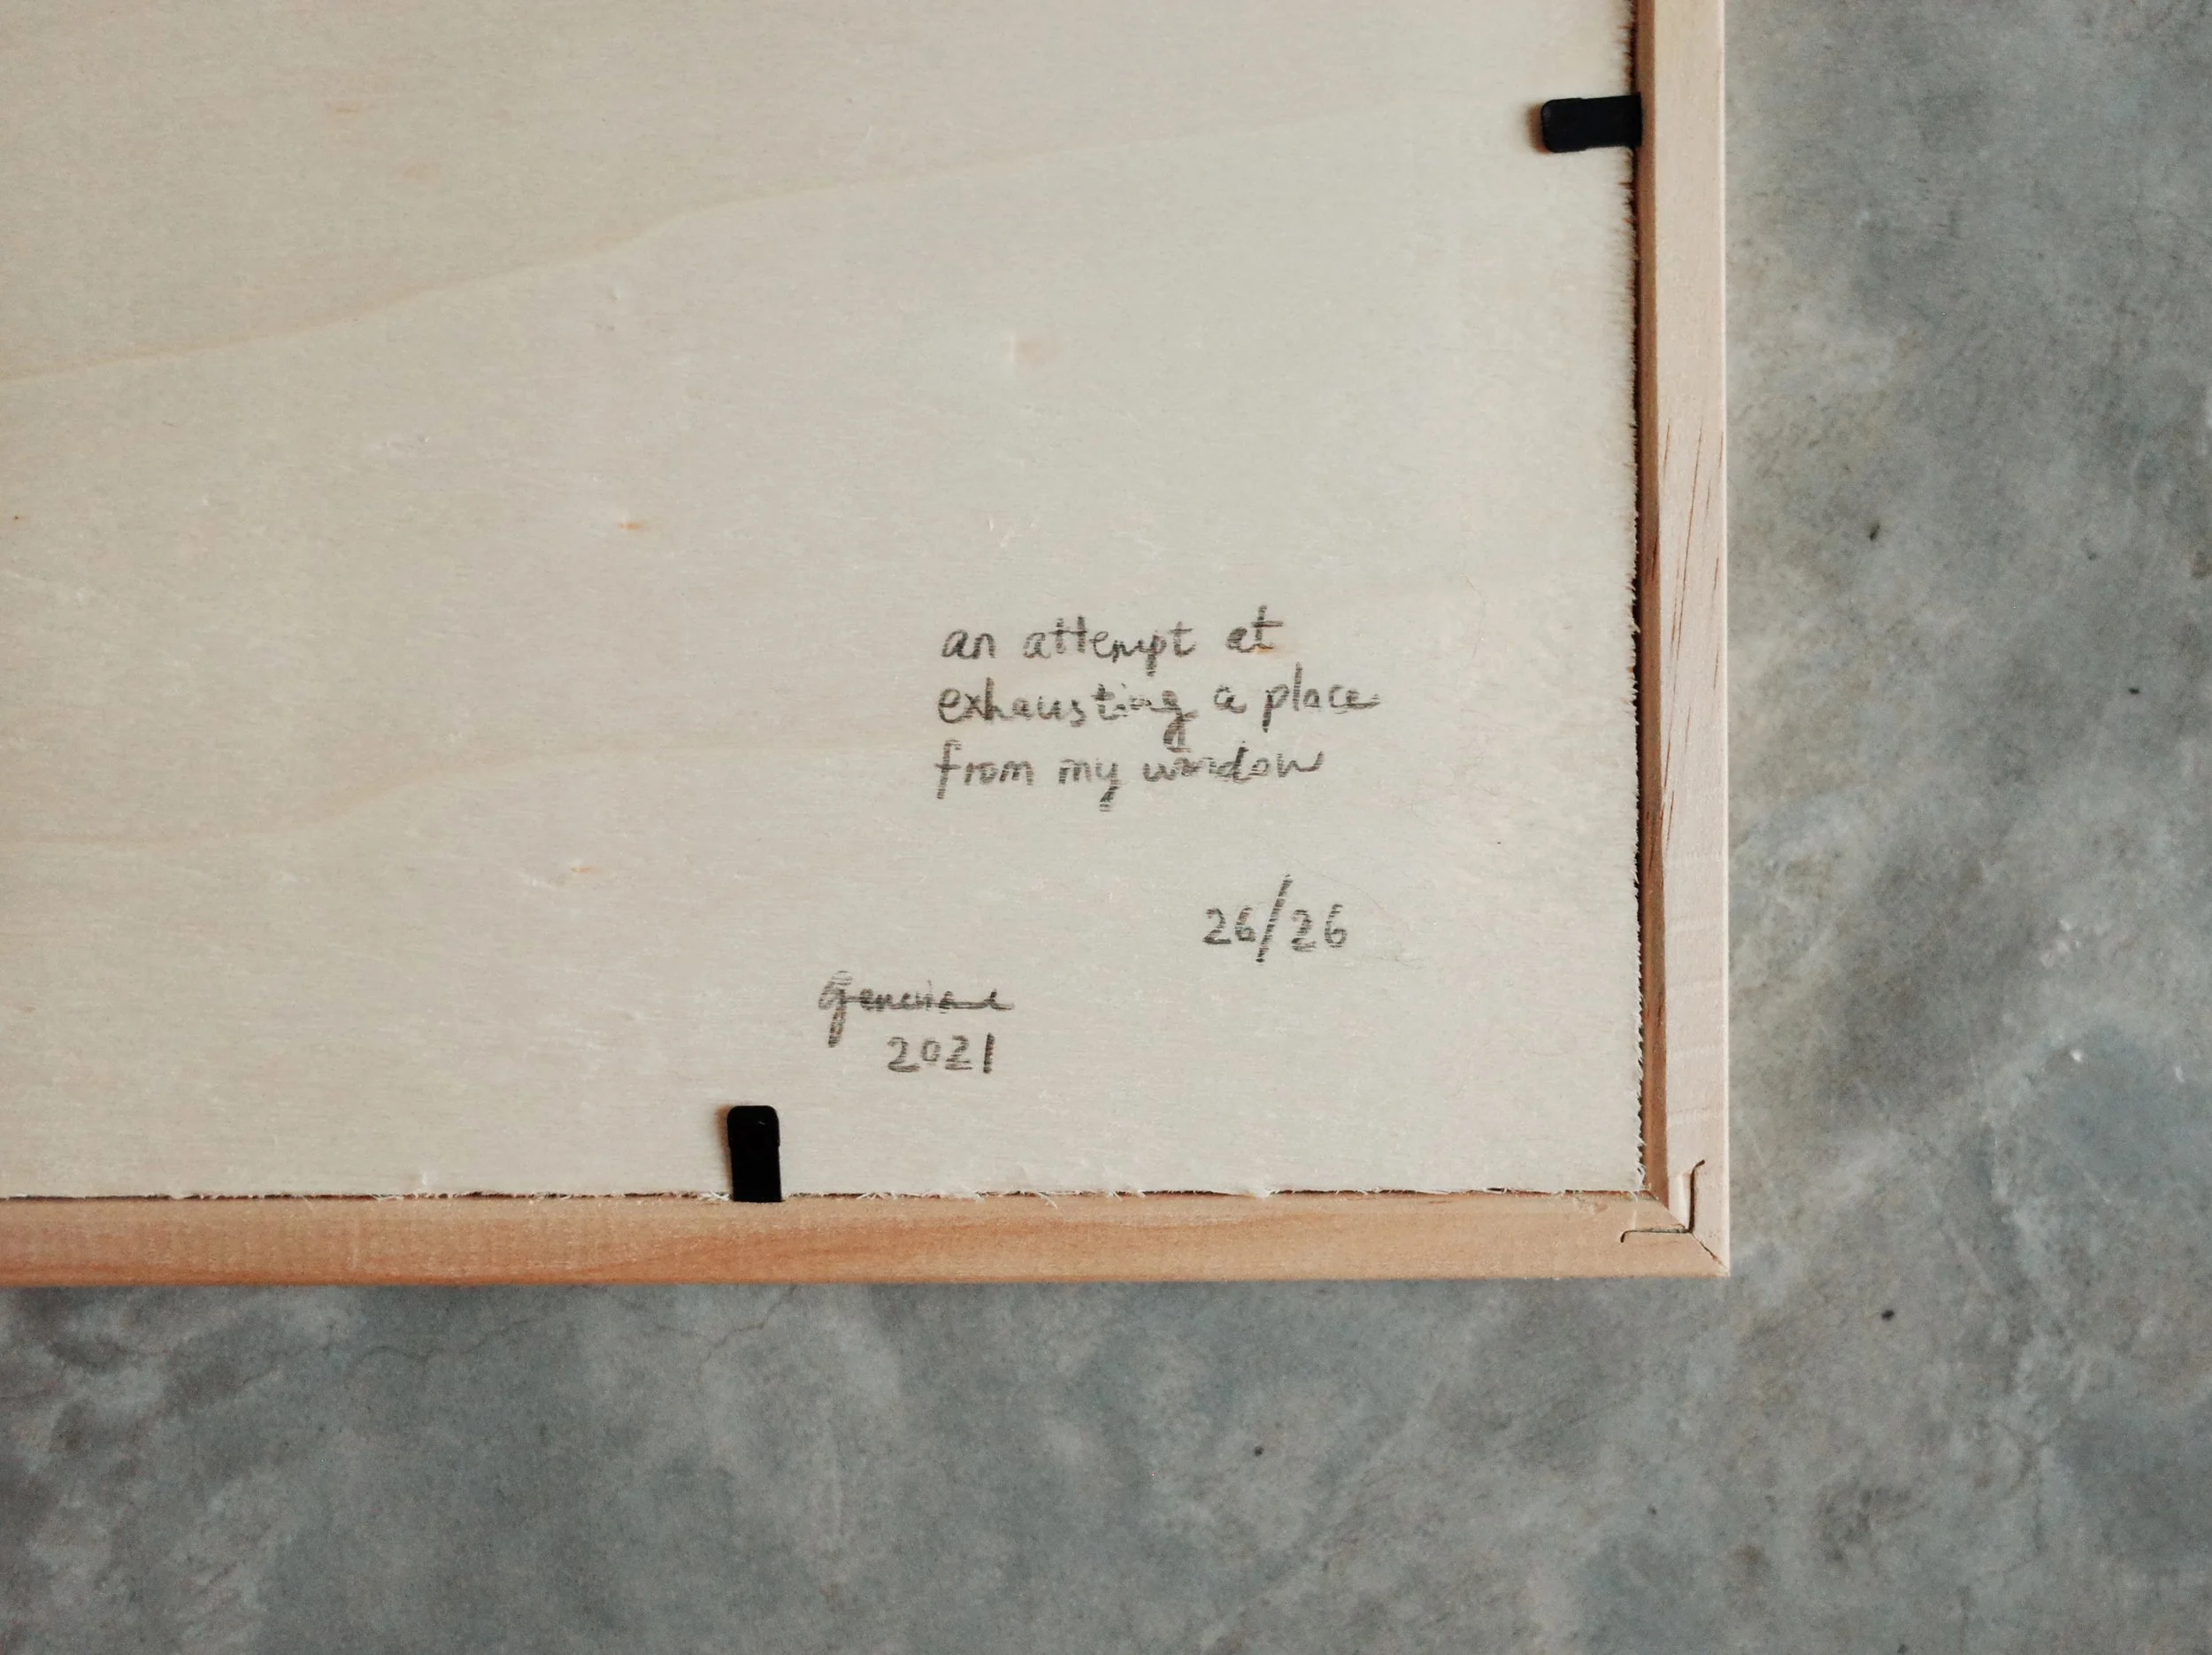 an attempt at
exhausting a place
from my window
26/26
2021